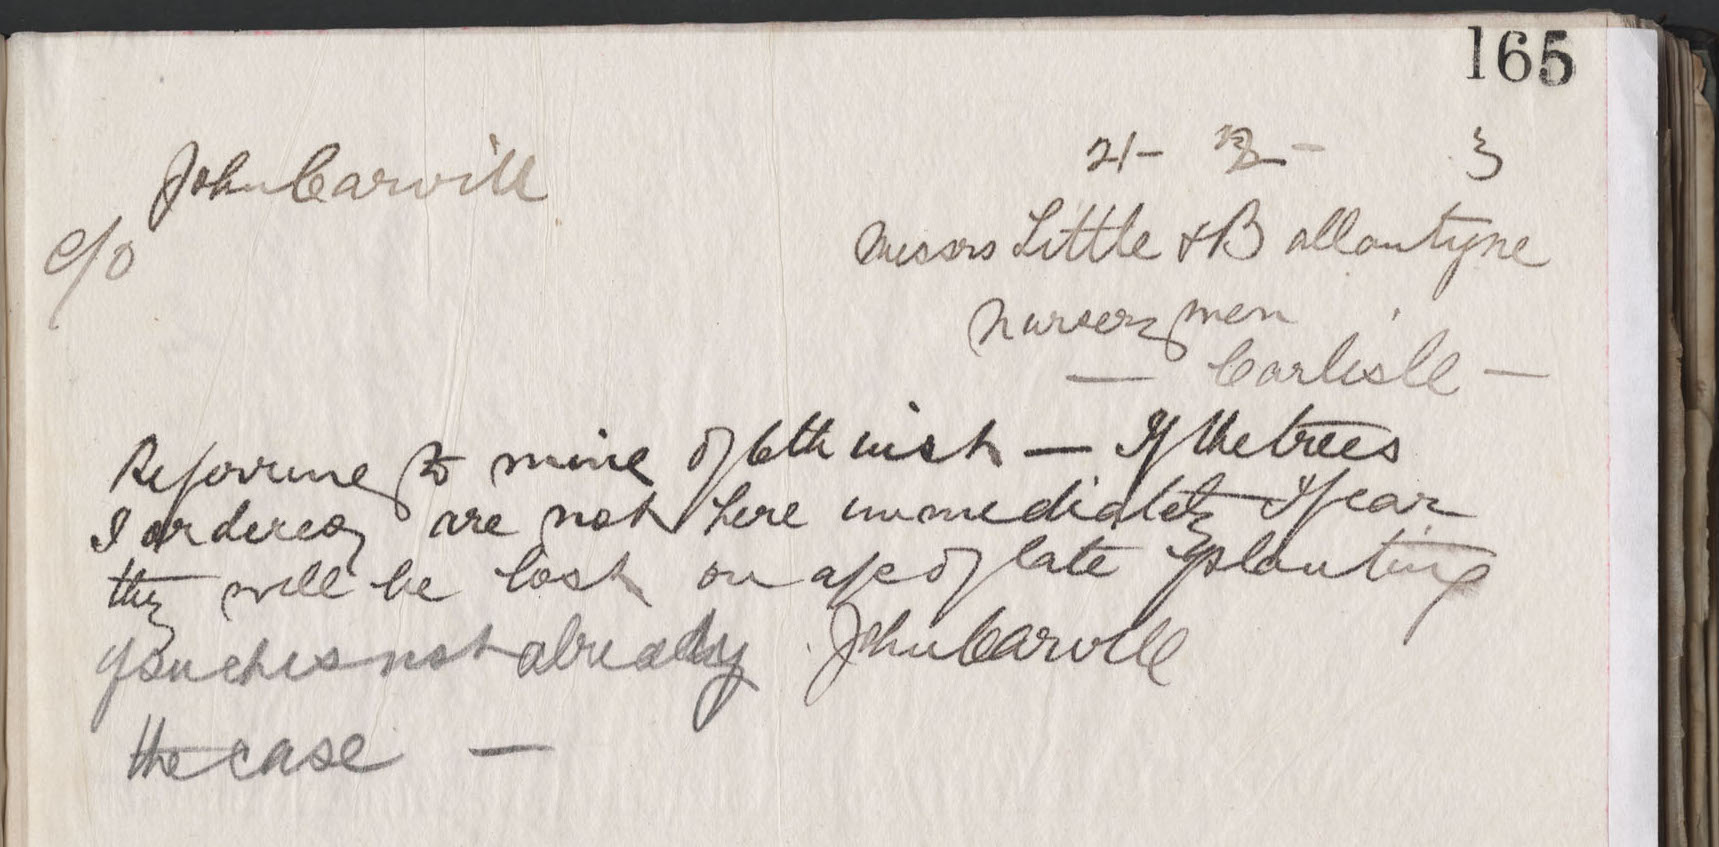 165
John Carvill
21- 12 - 3
c/o
Messrs Little & Ballantyne
Nursery men
— Carlisle —
Referring to mine of 6th inst — If the trees
I ordered are not here immediately I fear
they will be lost on a/c of late planting
if such is not already John Carvill
the case —